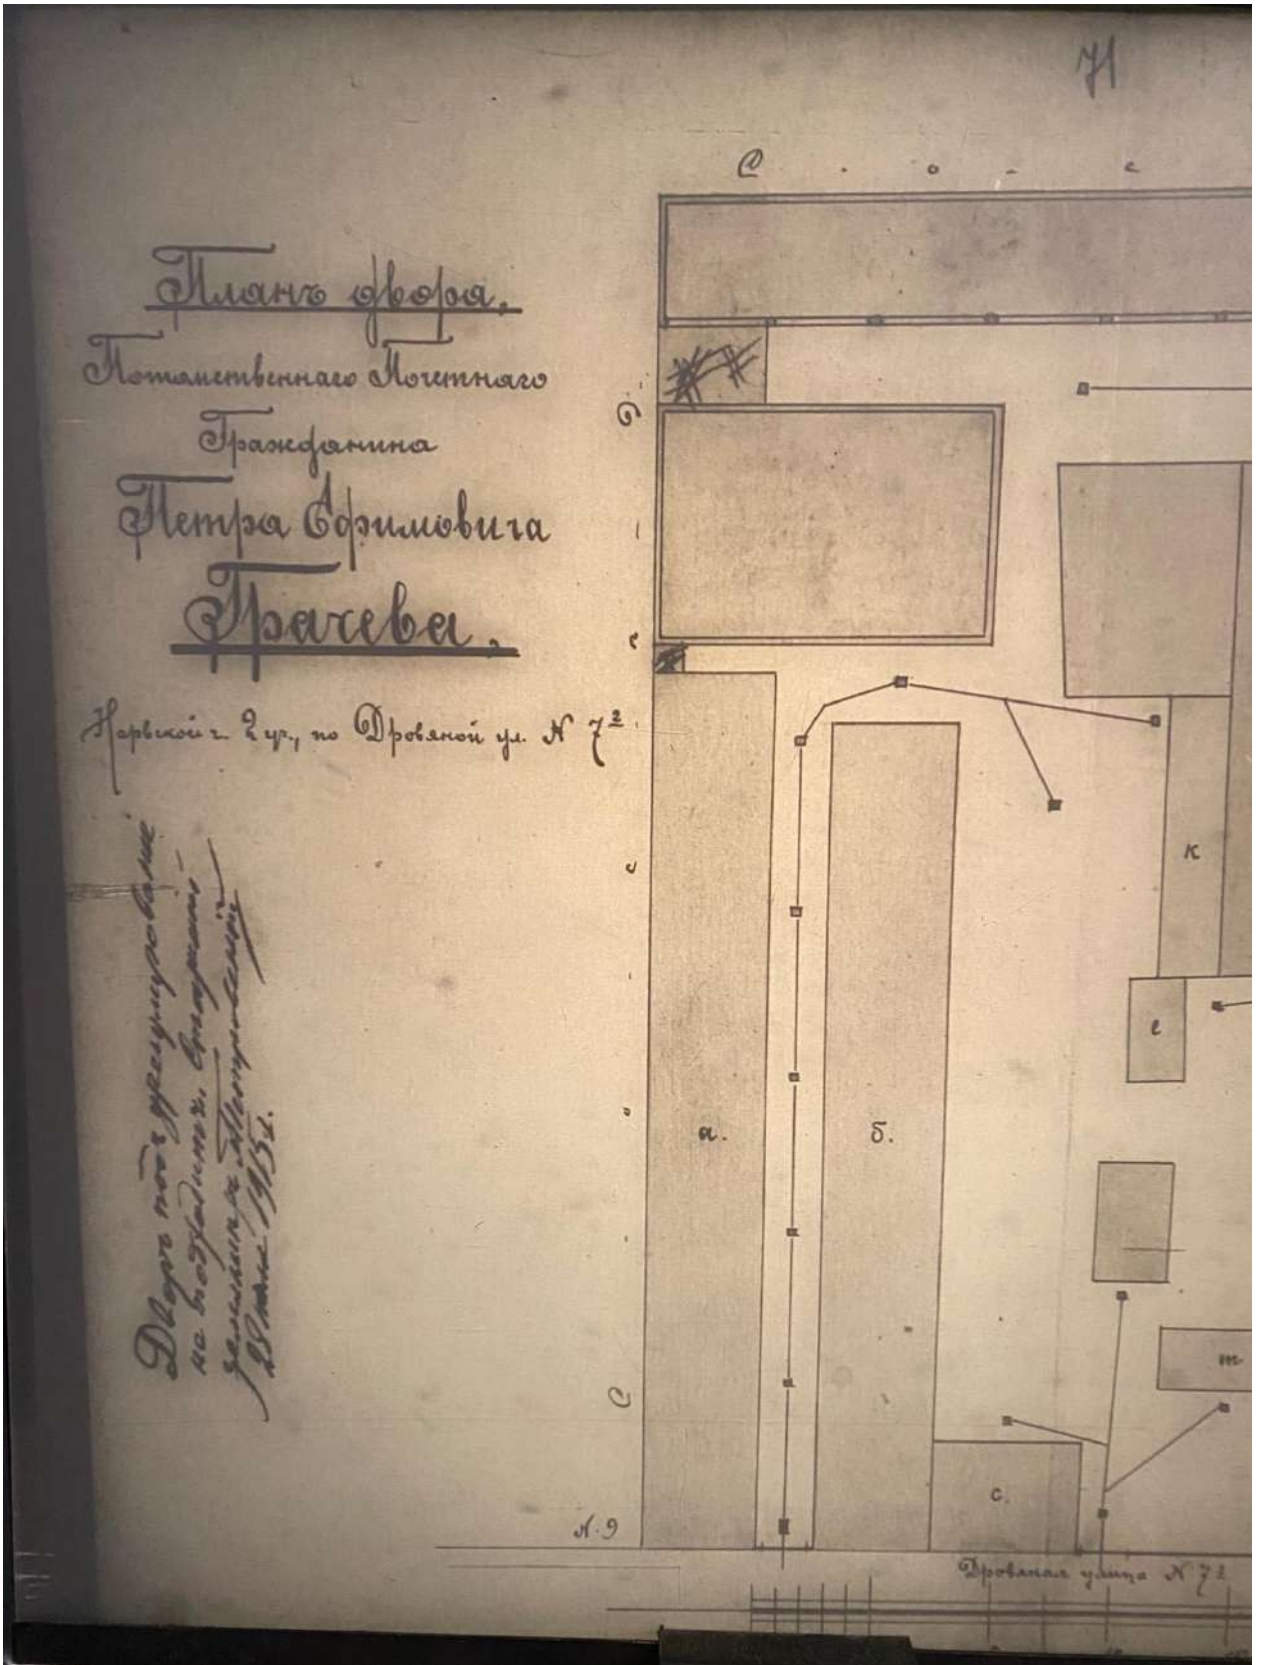 71
С . о - с
Планъ двора.
Потомственнаго Почетнаго
Гражданина
Петра Ефимовича
Грачева.
Нарвской ч. 2 уч., по Дровяной ул. № 7²
Дворъ подъ
на
28 1915 г.
к
е
а.
б.
т
с.
С
№ 9
Дровяная улица № 7²